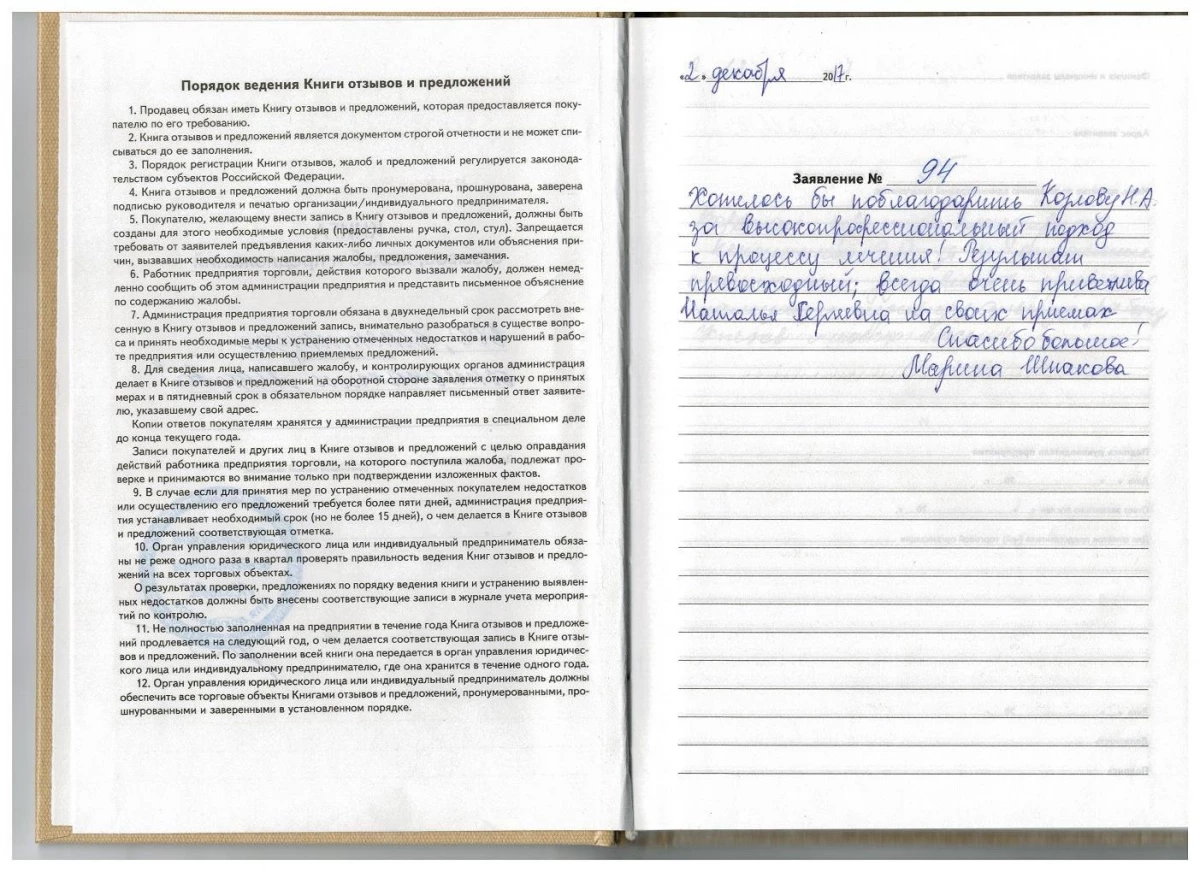 Порядок ведения Книги отзывов и предложений
1. Продавец обязан иметь Книгу отзывов и предложений, которая предоставляется поку-
пателю по его требованию.
2. Книга отзывов и предложений является документом строгой отчетности и не может спи-
сываться до ее заполнения.
3. Порядок регистрации Книги отзывов, жалоб и предложений регулируется законода-
тельством субъектов Российской Федерации.
4. Книга отзывов и предложений должна быть пронумерована, прошнурована, заверена
подписью руководителя и печатью организации/индивидуального предпринимателя.
5. Покупателю, желающему внести запись в Книгу отзывов и предложений, должны быть
созданы для этого необходимые условия (предоставлены ручка, стол, стул). Запрещается
требовать от заявителей предъявления каких-либо личных документов или объяснения при-
чин, вызвавших необходимость написания жалобы, предложения, замечания.
6. Работник предприятия торговли, действия которого вызвали жалобу, должен немед-
ленно сообщить об этом администрации предприятия и представить письменное объяснение
по содержанию жалобы.
7. Администрация предприятия торговли обязана в двухнедельный срок рассмотреть вне-
сенную в Книгу отзывов и предложений запись, внимательно разобраться в существе вопро-
са и принять необходимые меры к устранению отмеченных недостатков и нарушений в рабо-
те предприятия или осуществлению приемлемых предложений.
8. Для сведения лица, написавшего жалобу, и контролирующих органов администрация
делает в Книге отзывов и предложений на оборотной стороне заявления отметку о принятых
мерах и в пятидневный срок в обязательном порядке направляет письменный ответ заявите-
лю, указавшему свой адрес.
Копии ответов покупателям хранятся у администрации предприятия в специальном деле
до конца текущего года.
Записи покупателей и других лиц в Книге отзывов и предложений с целью оправдания
действий работника предприятия торговли, на которого поступила жалоба, подлежат про-
верке и принимаются во внимание только при подтверждении изложенных фактов.
9. В случае если для принятия мер по устранению отмеченных покупателем недостатков
или осуществлению его предложений требуется более пяти дней, администрация предприя-
тия устанавливает необходимый срок (но не более 15 дней), о чем делается в Книге отзывов
и предложений соответствующая отметка.
10. Орган управления юридического лица или индивидуальный предприниматель обяза-
ны не реже одного раза в квартал проверять правильность ведения Книг отзывов и предло-
жений на всех торговых объектах.
О результатах проверки, предложениях по порядку ведения книги и устранению выявлен-
ных недостатков должны быть внесены соответствующие записи в журнале учета мероприя-
тий по контролю.
11. Не полностью заполненная на предприятии в течение года Книга отзывов и предложе-
ний продлевается на следующий год, о чем делается соответствующая запись в Книге отзы-
вов и предложений. По заполнении всей книги она передается в орган управления юридичес-
кого лица или индивидуальному предпринимателю, где она хранится в течение одного года.
12. Орган управления юридического лица или индивидуальный предприниматель должны
обеспечить все торговые объекты Книгами отзывов и предложений, пронумерованными, про-
шнурованными и заверенными в установленном порядке.
«2» декабря 2017г.
Заявление № 94
Хотелось бы поблагодарить Козлову Н.А.
за высокопрофессиональный подход
к процессу лечения! Результат
превосходный; всегда очень приветлива
Наталья на своих приемах
Спасибо большое!
Марина Шпакова